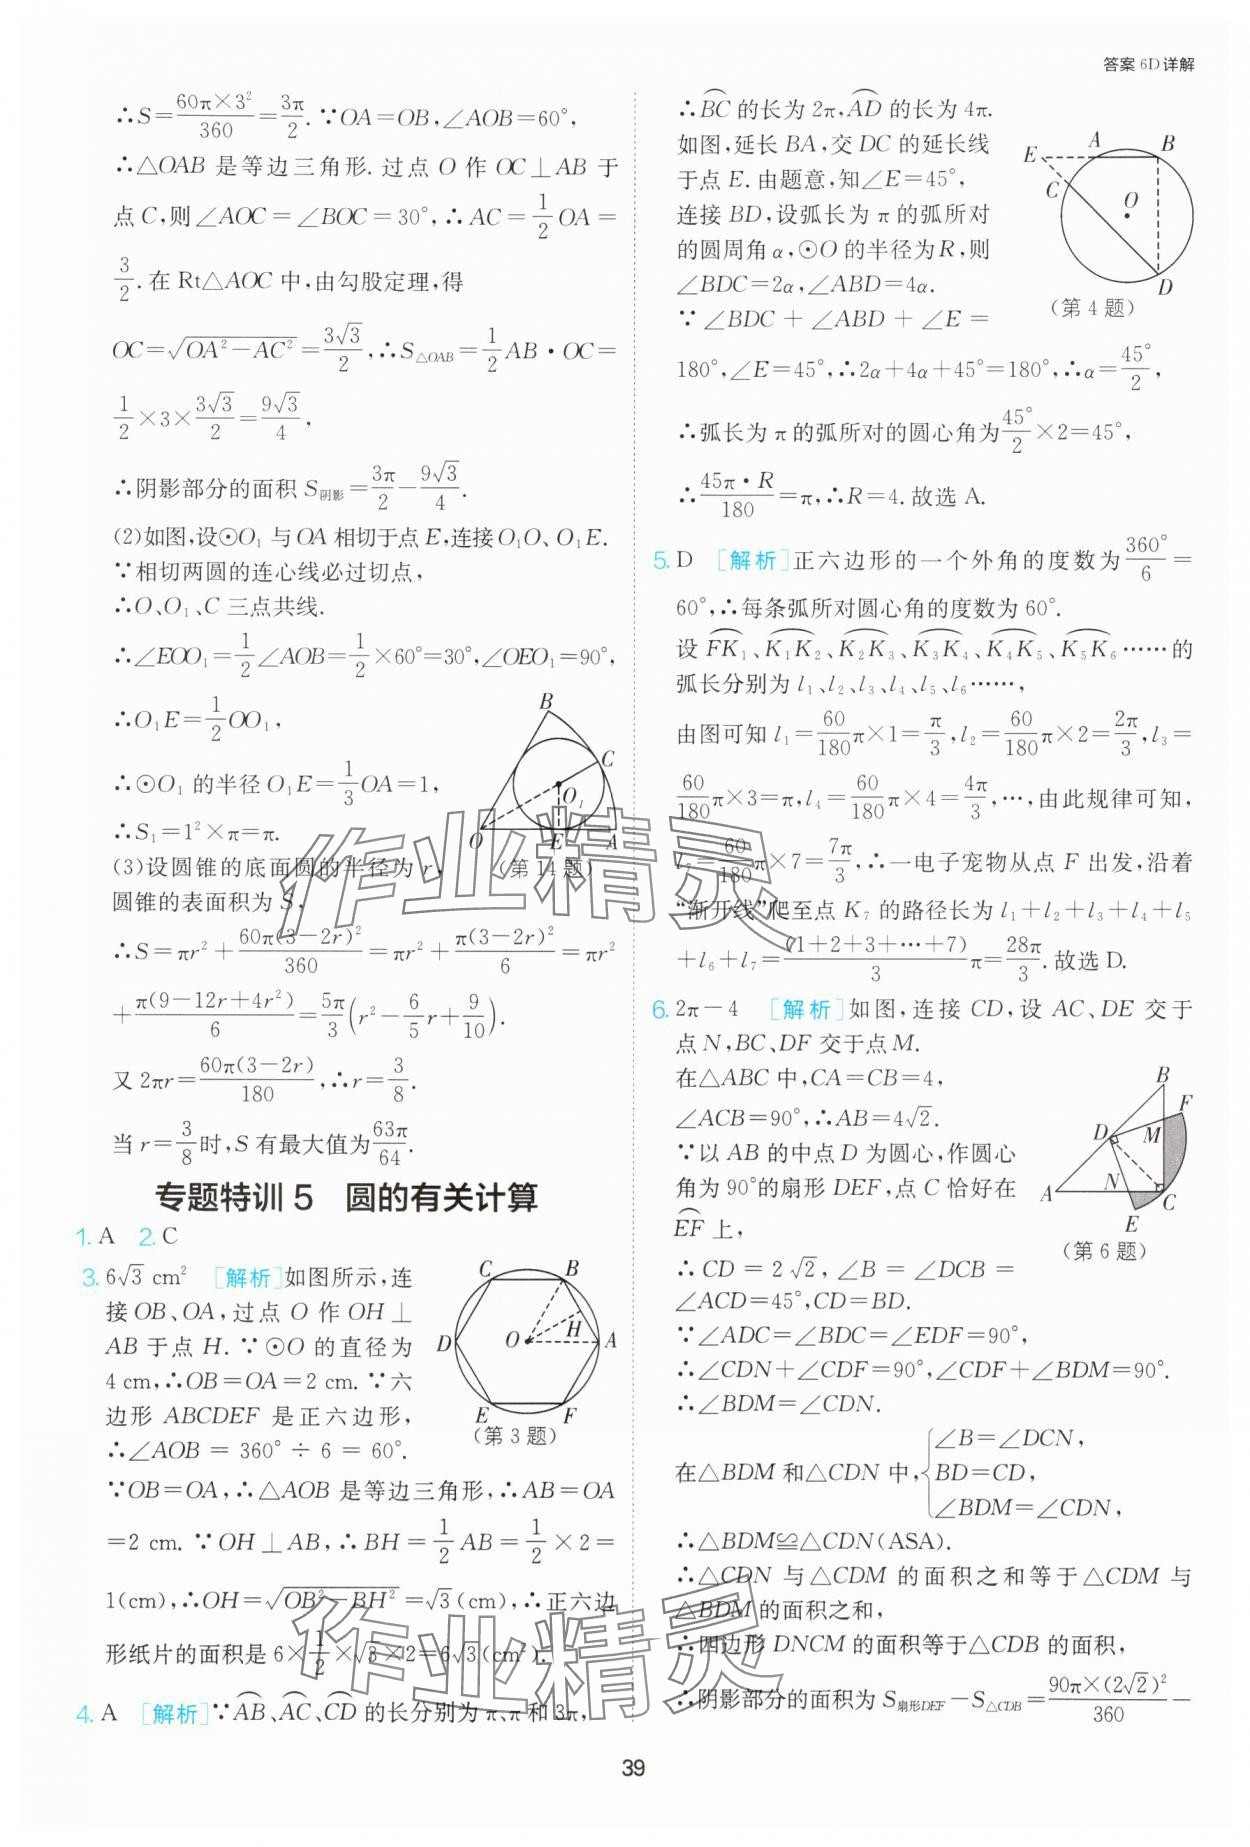 答案 6D详解
∴S=60π×3²/360=3π/2.∵OA=OB,∠AOB=60°,
∴△OAB 是等边三角形.过点 O 作 OC⊥AB 于
点 C,则∠AOC=∠BOC=30°,∴AC=1/2OA=
3/2.在 Rt△AOC 中,由勾股定理,得
OC=√(OA²-AC²)=3√3/2,∴S△OAB=1/2AB·OC=
1/2×3×3√3/2=9√3/4,
∴阴影部分的面积 S阴影=3π/2-9√3/4.
(2)如图,设⊙O₁ 与 OA 相切于点 E,连接 O₁O、O₁E.
∵相切两圆的连心线必过切点,
∴O、O₁、C 三点共线.
∴∠EOO₁=1/2∠AOB=1/2×60°=30°,∠OEO₁=90°,
∴O₁E=1/2OO₁,
∴⊙O₁ 的半径 O₁E=1/3OA=1,
∴S₁=1²×π=π.
B
C
O₁
O
E
A
(第 14 题)
(3)设圆锥的底面圆的半径为 r,
圆锥的表面积为 S,
∴S=πr²+60π(3-2r)²/360=πr²+π(3-2r)²/6=πr²
+π(9-12r+4r²)/6=5π/3(r²-6/5r+9/10).
又 2πr=60π(3-2r)/180,∴r=3/8.
当 r=3/8时,S 有最大值为63π/64.
专题特训 5 圆的有关计算
1. A 2. C
3. 6√3 cm² [解析]如图所示,连
接 OB、OA,过点 O 作 OH⊥
AB 于点 H.∵⊙O 的直径为
4 cm,∴OB=OA=2 cm.∵六
边形 ABCDEF 是正六边形,
∴∠AOB=360°÷6=60°.
C
B
D
O
H
A
E
F
(第 3 题)
∵OB=OA,∴△AOB 是等边三角形,∴AB=OA
=2 cm.∵OH⊥AB,∴BH=1/2AB=1/2×2=
1(cm),∴OH=√(OB²-BH²)=√3(cm),∴正六边
形纸片的面积是 6×1/2×√3×2=6√3(cm²).
4. A [解析]∵⌒AB、⌒AC、⌒CD 的长分别为 π、π 和 3π,
∴⌒BC 的长为 2π,⌒AD 的长为 4π.
如图,延长 BA,交 DC 的延长线
于点 E.由题意,知∠E=45°,
连接 BD,设弧长为 π 的弧所对
的圆周角 α,⊙O 的半径为 R,则
∠BDC=2α,∠ABD=4α.
∵∠BDC+∠ABD+∠E=
E
A
B
C
O
D
(第 4 题)
180°,∠E=45°,∴2α+4α+45°=180°,∴α=45°/2,
∴弧长为 π 的弧所对的圆心角为45°/2×2=45°,
∴45π·R/180=π,∴R=4.故选 A.
5. D [解析]正六边形的一个外角的度数为360°/6=
60°,∴每条弧所对圆心角的度数为 60°.
设⌒FK₁、⌒K₁K₂、⌒K₂K₃、⌒K₃K₄、⌒K₄K₅、⌒K₅K₆……的
弧长分别为 l₁、l₂、l₃、l₄、l₅、l₆……,
由图可知 l₁=60/180π×1=π/3,l₂=60/180π×2=2π/3,l₃=
60/180π×3=π,l₄=60/180π×4=4π/3,…,由此规律可知,
l₇=60/180π×7=7π/3,∴一电子宠物从点 F 出发,沿着
“渐开线”爬至点 K₇ 的路径长为 l₁+l₂+l₃+l₄+l₅
+l₆+l₇=(1+2+3+…+7)/3π=28π/3.故选 D.
6. 2π-4 [解析]如图,连接 CD,设 AC、DE 交于
点 N,BC、DF 交于点 M.
在△ABC 中,CA=CB=4,
∠ACB=90°,∴AB=4√2.
∵以 AB 的中点 D 为圆心,作圆心
角为 90°的扇形 DEF,点 C 恰好在
⌒EF 上,
B
F
D
M
A
N
C
E
(第 6 题)
∴CD=2√2,∠B=∠DCB=
∠ACD=45°,CD=BD.
∵∠ADC=∠BDC=∠EDF=90°,
∴∠CDN+∠CDF=90°,∠CDF+∠BDM=90°.
∴∠BDM=∠CDN.
在△BDM 和△CDN 中,{∠B=∠DCN,
BD=CD,
∠BDM=∠CDN,
∴△BDM≌△CDN(ASA).
∴△CDN 与△CDM 的面积之和等于△CDM 与
△BDM 的面积之和,
∴四边形 DNCM 的面积等于△CDB 的面积,
∴阴影部分的面积为 S扇形DEF-S△CDB=90π×(2√2)²/360-
39
作业精灵
作业精灵